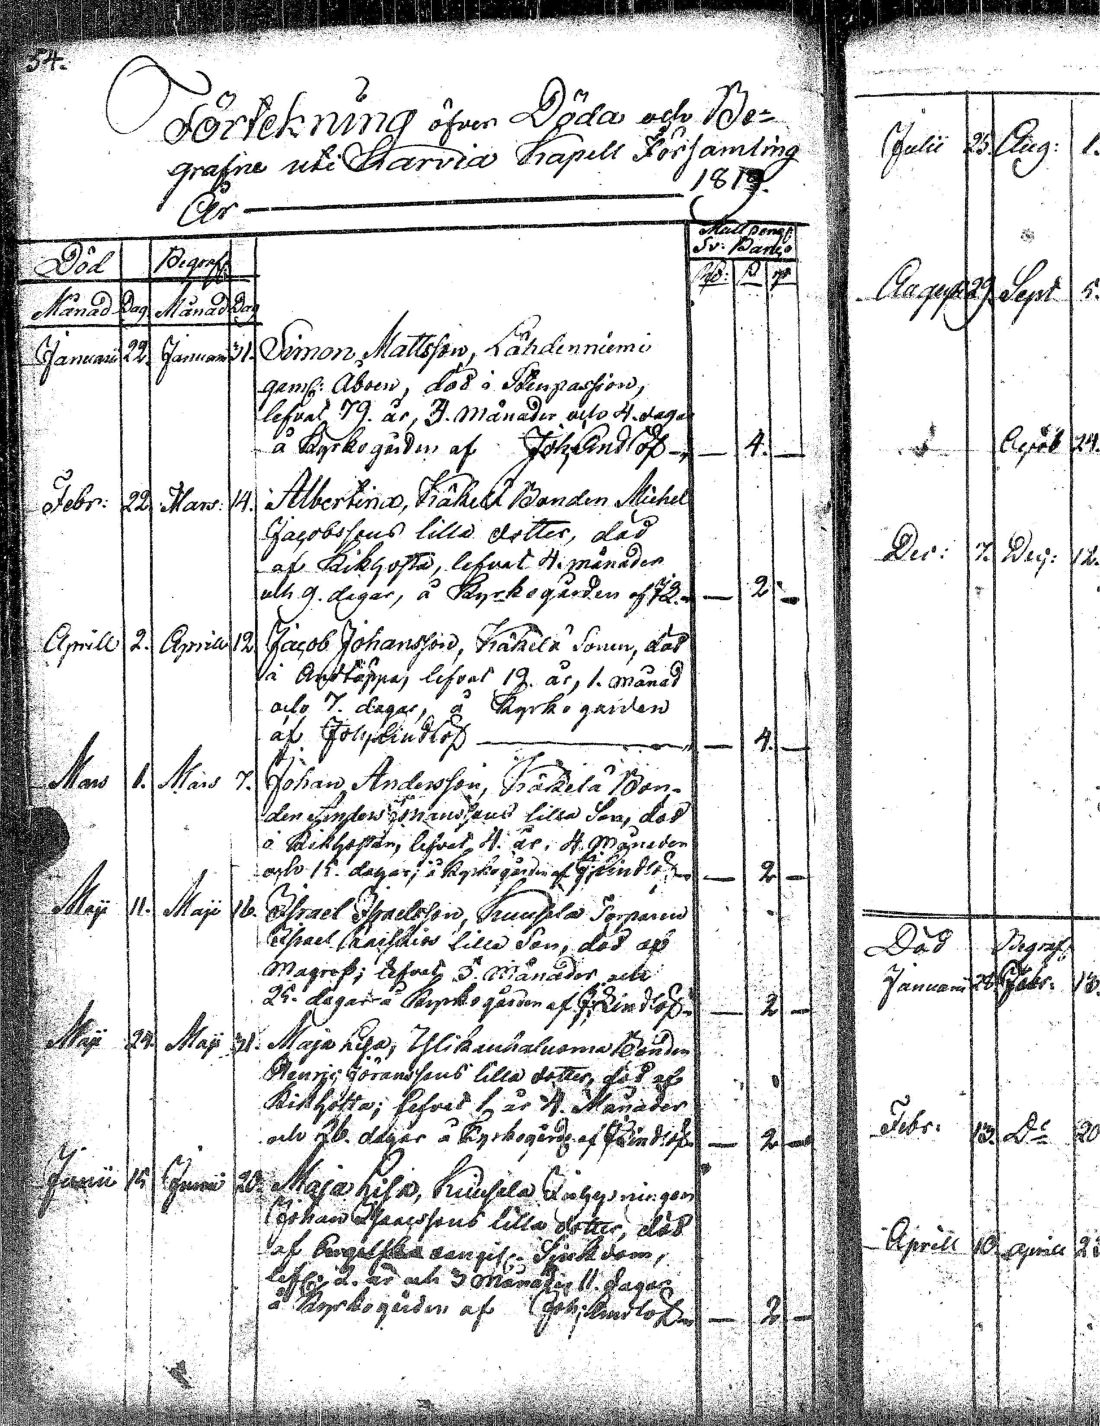 54.
Förtekning öfver Döda och Be=
grafne uti Karvia Kapell Församling
År 1819.
Död Begraf:
Sv: Banco
Månad Dag Månad Dag
Januarii 22. Januarii 31. Simon Mattsson, Lähdenniemi
gaml: Åboen, död i
lefvat 79. år, 3. Månader och 4. dagar
å Kyrkogården af Joh, Lindlöf — 4. —
Febr: 22 Mars: 14. Albertina, Käkelä Bonden Michel
Jacobssons lilla dotter, död
af Kikhosta, lefvat 4. månader
och 9. dagar, å Kyrkogården af — 2 —
Aprill 2. Aprill 12 Jacob Johansson, Käkelä Sonen, död
i Andtäppa, lefvat 19. år, 1. månad
och 7. dagar, å Kyrkogården
af Joh, Lindlöf — 4. —
Mars 1. Mars 7. Johan Andersson, Käkelä Bon-
den Anders lilla Son, död
i Kikhostan, lefvat 4. år, 4. Månader
och 15. dagar, å Kyrkogården af J, Lindlöf — 2 —
Maji 11. Maji 16. Israel Israelsson, Kuusela Torparen
Israel lilla Son, död af
Magref; lefvat 3. Månader och
25. dagar å Kyrkogården af J, Lindlöf — 2 —
Maji 24. Maji 31. Maja Lisa, Bonden
Henric Göranssons lilla dotter, död af
Kikhosta; lefvat 1 år 4. Månader
och 26. dagar å Kyrkogård: af J, Lindlöf — 2 —
Junii 15 Junii 20. Maja Lisa, Kuusela Inhysningen
Johan Isaacssons lilla dotter, död
af Sjukdom,
lefv: 2. år och 3 Månader 11. dagar
å Kyrkogården af Joh, Lindlöf — 2 —
Julii 25. Aug: 1.
Augusti 29. Sept 5.
24.
Dec: 7. Dec: 12.
Död Begraf:
Januarii 28. Febr. 13.
Febr: 13. D:o 20
Aprill 10. Aprill